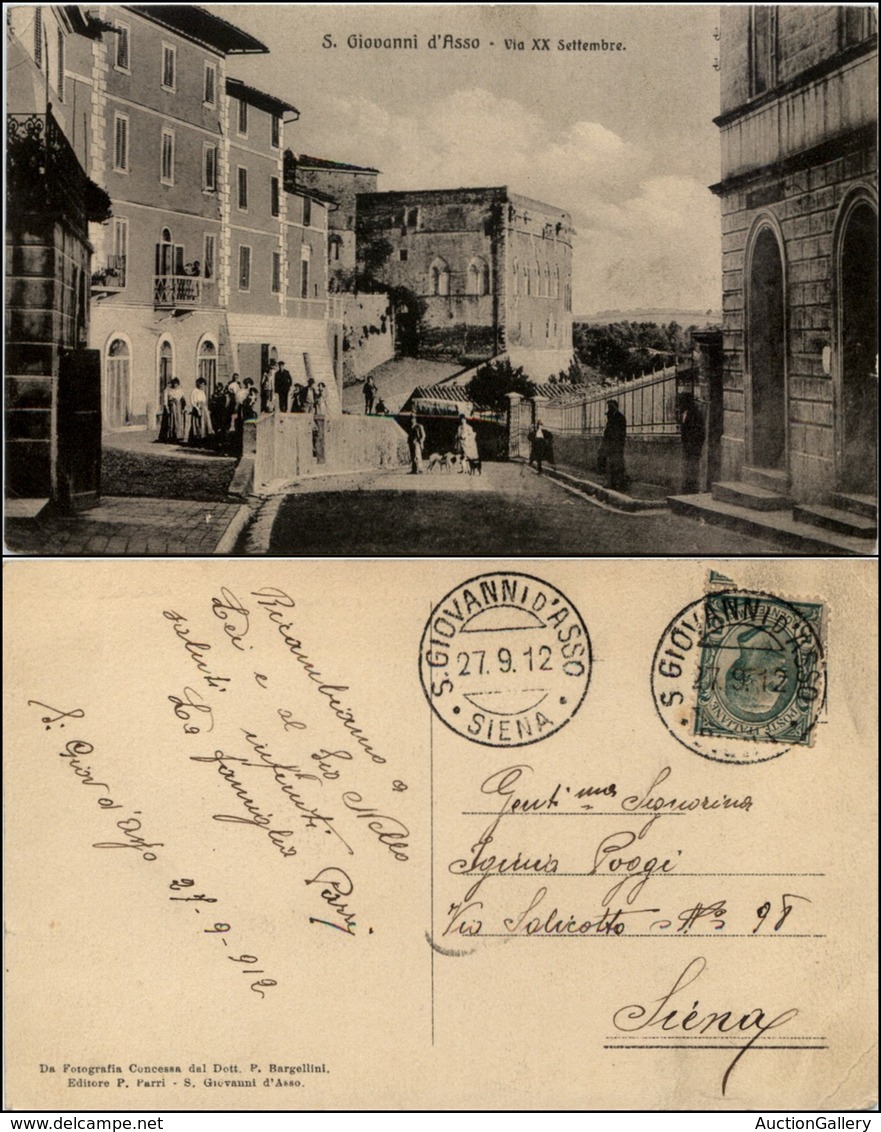 S. Giovanni d'Asso - Via XX Settembre.
S. GIOVANNI D'ASSO
27.9.12
• SIENA •
S. GIOVANNI D'ASSO
27.9.12
POSTE ITALIANE
Ricambiamo a
Lei e al Sig Nello
saluti infiniti
La famiglia Parri
S. Giov d'Asso 27-9-912
Genti.ma Signorina
Iginia Poggi
Via Salicotto No 98
Siena
Da Fotografia Concessa dal Dott. P. Bargellini.
Editore P. Parri - S. Giovanni d'Asso.
AuctionGallery